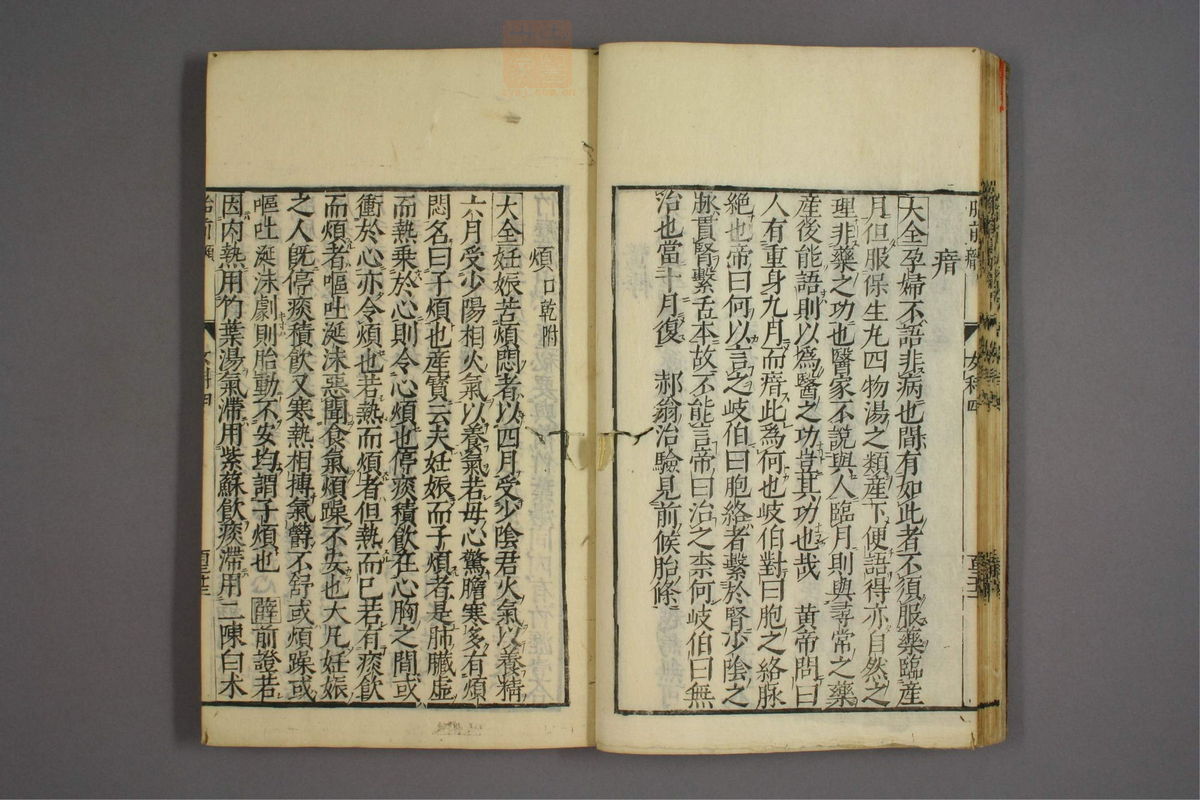 瘖
大全孕婦不語非病也間有如此者不須服藥臨產
月但服保生丸四物湯之類產下便語得亦自然之
理非藥之功也醫家不說與人臨月則與尋常之藥
產後能語則以爲醫之功豈其功也哉 黃帝問曰
人有重身九月而瘖此爲何也岐伯對曰胞之絡脉
絶也帝曰何以言之岐伯曰胞絡者繫於腎少陰之
脉貫腎繫舌本故不能言帝曰治之柰何岐伯曰無
治也當十月復 郝翁治驗見前候胎條
煩口乾附
大全妊娠苦煩悶者以四月受少陰君火氣以養精
六月受少陽相火氣以養氣若母心驚膽寒多有煩
悶名曰子煩也產寶云夫妊娠而子煩者是肺臟虛
而熱乗於心則令心煩也停痰積飲在心胸之間或
衝於心亦令煩也若熱而煩者但熱而已若有痰飲
而煩者嘔吐涎沫惡聞食氣煩躁不安也大凡妊娠
之人旣停痰積飲又寒熱相搏氣鬱不舒或煩躁或
嘔吐涎沫劇則胎動不安均謂子煩也 薛前證若
因內熱用竹葉湯氣滯用紫蘇飲痰滯用二陳白术